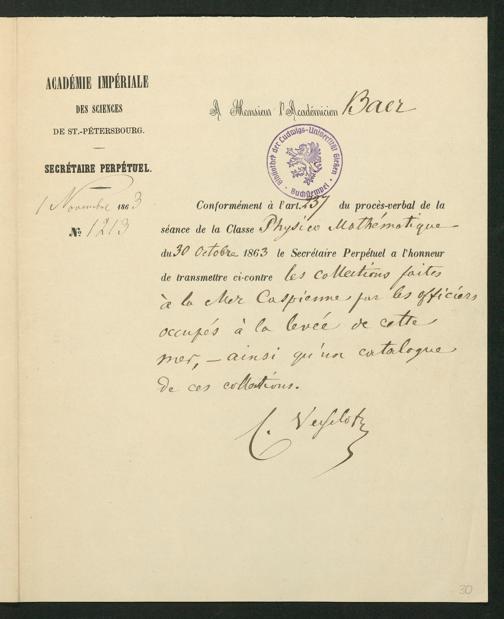 ACADÉMIE IMPÉRIALE
DES SCIENCES
DE ST.-PÉTERSBOURG.
SECRÉTAIRE PERPÉTUEL.
1 Novembre 1863
№ 1213
A Monsieur l'Académicien Baer
Bibliothek der Ludwigs-Universität Gießen
Buchstempel
Conformément à l'art. 137 du procès-verbal de la
séance de la Classe Physico Mathématique
du 30 Octobre 1863 le Secrétaire Perpétuel a l'honneur
de transmettre ci-contre les collections faites
à la Mer Caspienne par les officiers
occupés à la levée de cette
mer, – ainsi qu'un catalogue
de ces collections.
C.
30